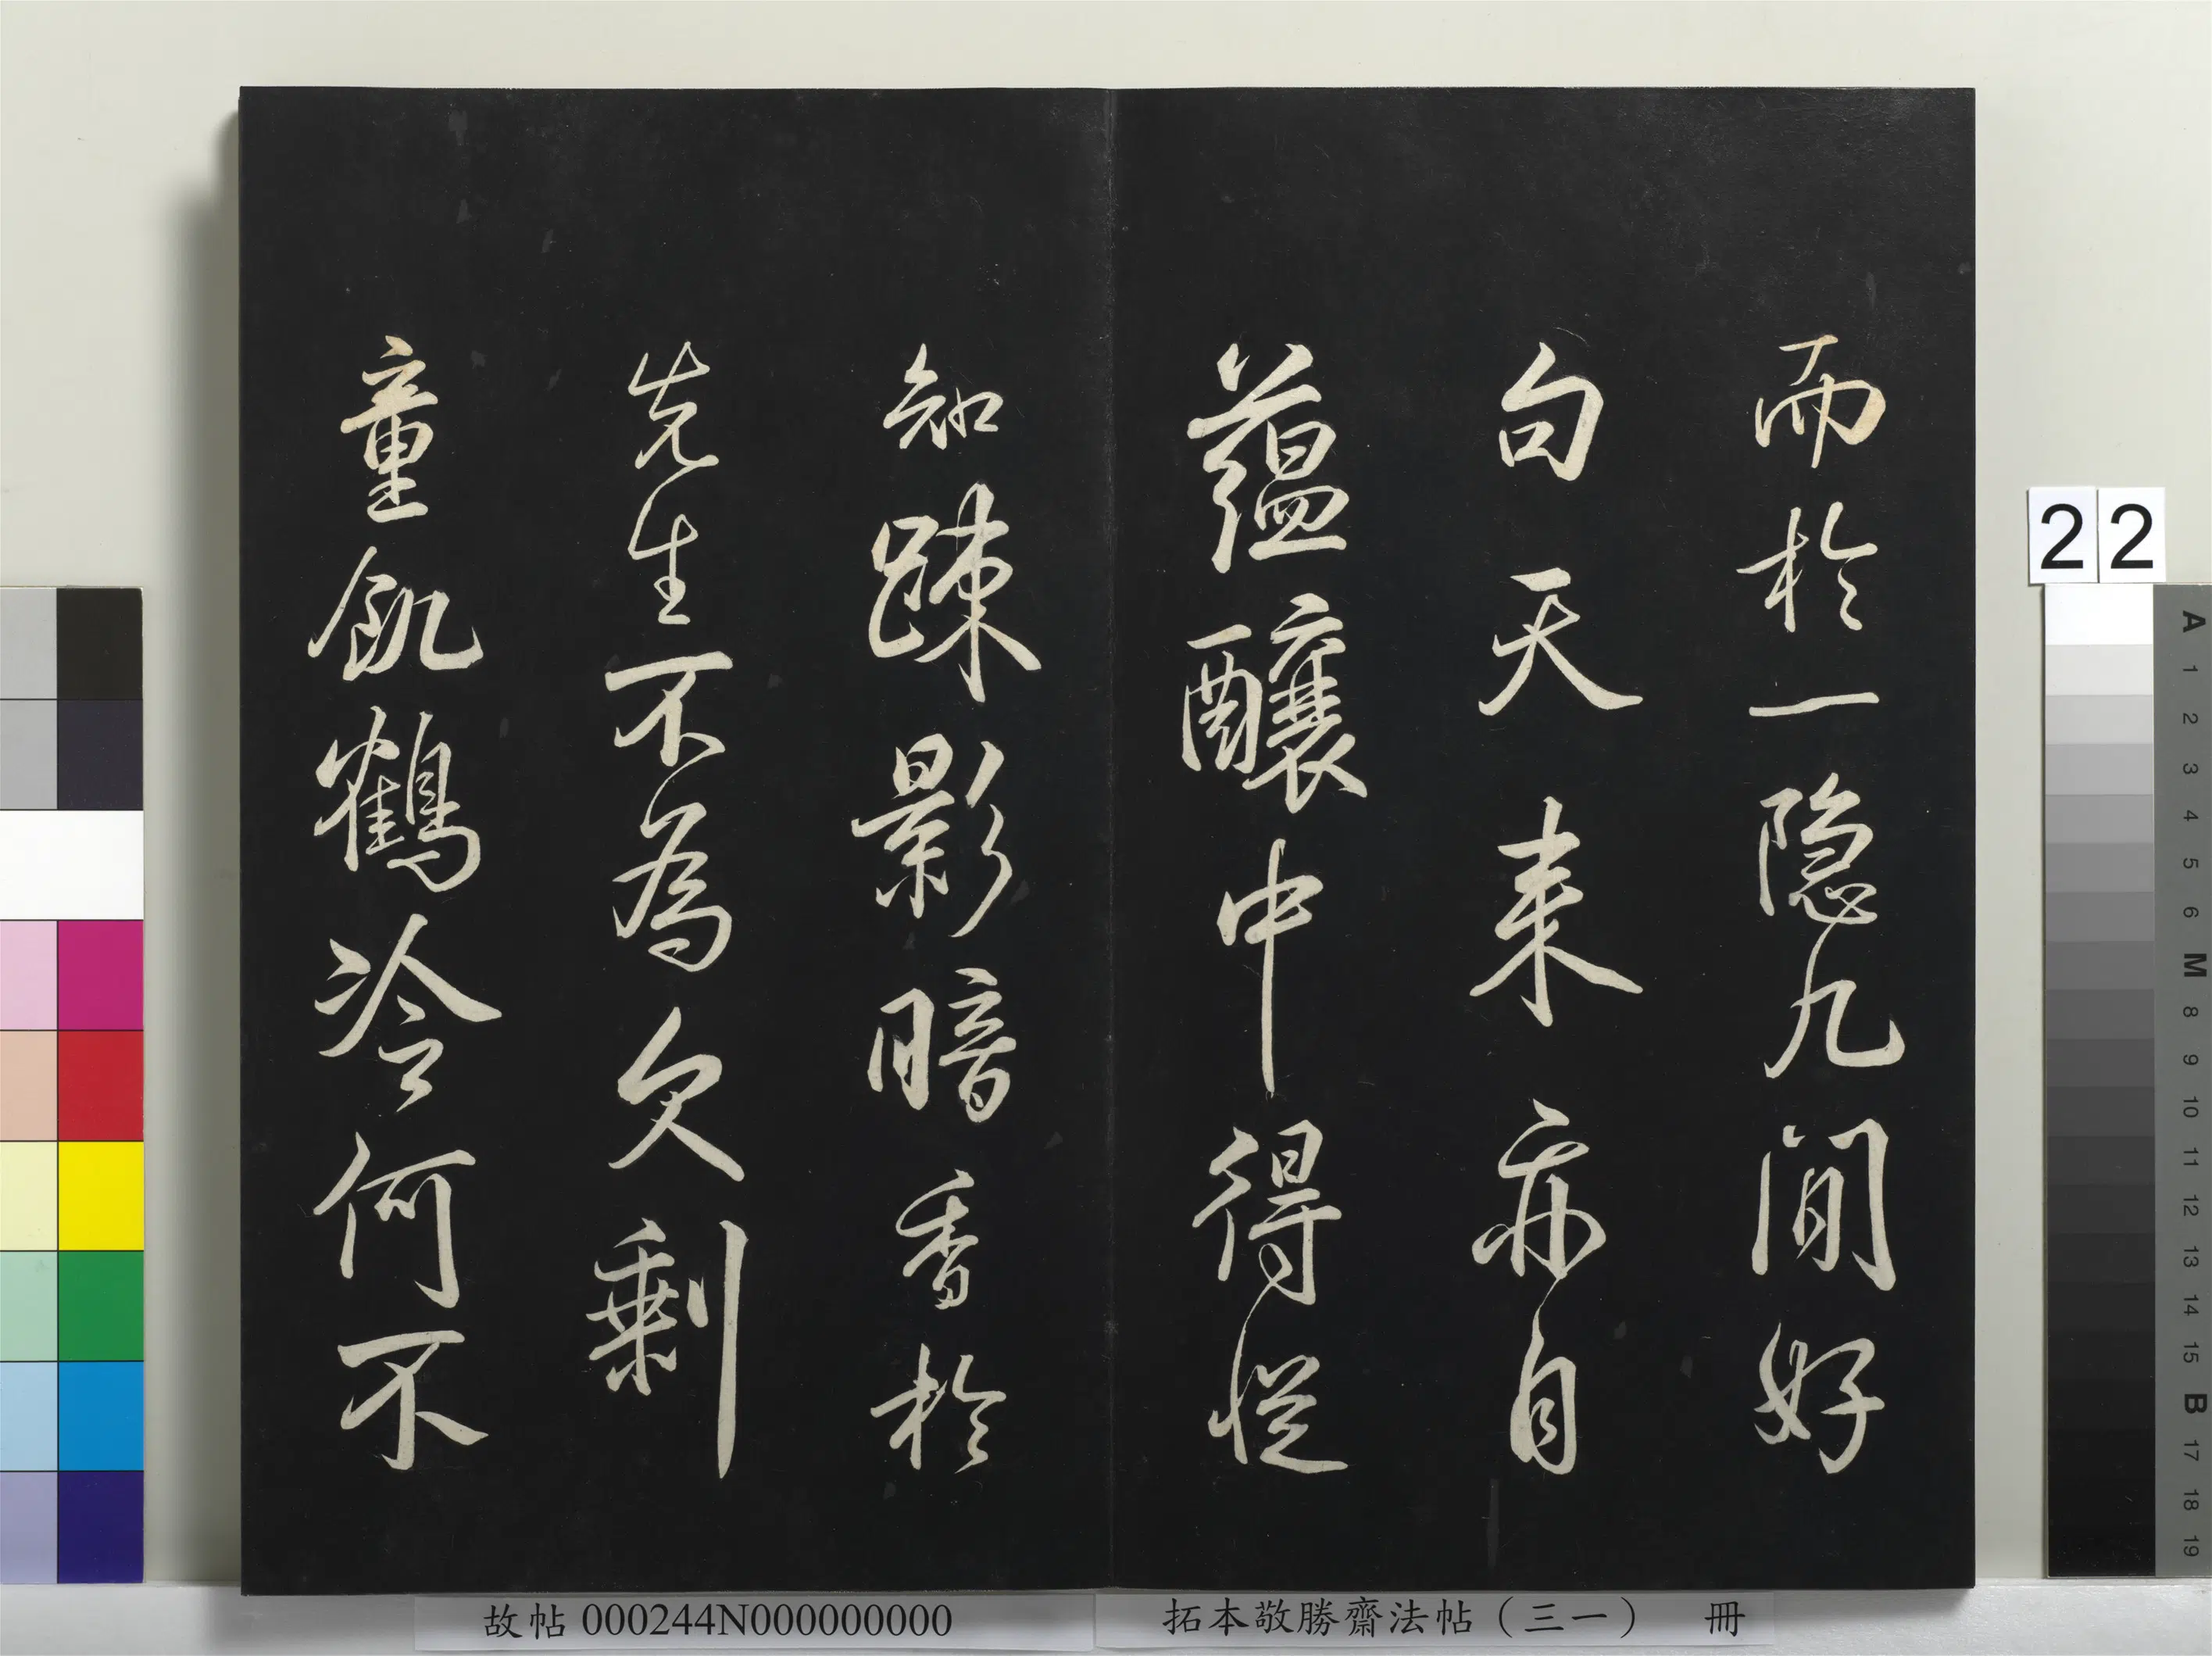 而於一隐九閒好
句天来亦自
蘊釀中得從
知踈影暗香於
先生不為欠剩
童飢鶴冷何不
22
A 1 2 3 4 5 6 M 8 9 10 11 12 13 14 15 B 17 18 19
故帖 000244N000000000
拓本敬勝齋法帖（三一） 冊